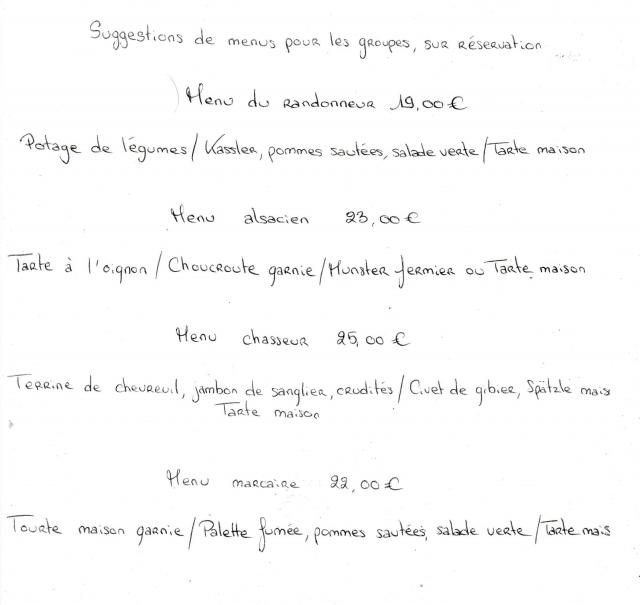 Suggestions de menus pour les groupes, sur réservation
Menu du randonneur 19,00 €
Potage de légumes / Kassler, pommes sautées, salade verte / Tarte maison
Menu alsacien 23,00 €
Tarte à l'oignon / Choucroute garnie / Munster fermier ou Tarte maison
Menu chasseur 25,00 €
Terrine de chevreuil, jambon de sanglier, crudités / Civet de gibier, Spätzle mais
Tarte maison
Menu marcaire 22,00 €
Tourte maison garnie / Palette fumée, pommes sautées, salade verte / Tarte mais